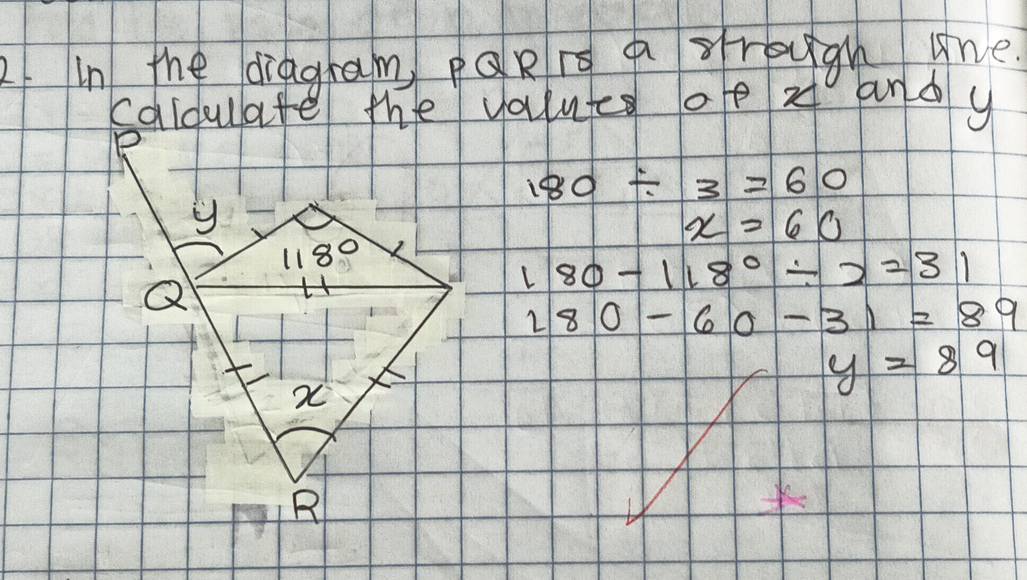 2. In the diagram, PQR is a straigh line.
Calculate the values of x and y
P
y
118°
Q
x
R
180 ÷ 3 = 60
x = 60
180 - 118° ÷ 2 = 31
180 - 60 - 31 = 89
y = 89